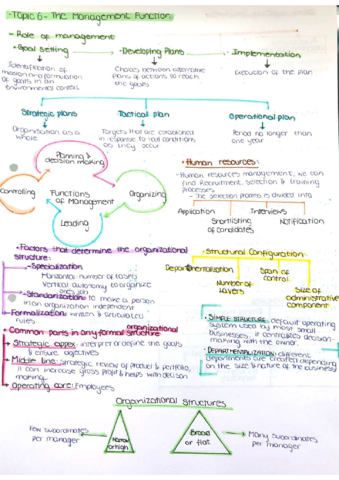 Topic 6 - The Management Function
- Role of management
• Goal Setting
- Developing Plans
- Implementation
Identification of
mission and formulation
of goals in an
environmental context
Choices between alternative
plans of actions to reach
the goals
Execution of the plan
Strategic plans
Tactical plan
Operational plan
Organisation as a
whole
Targets that are established
in response to real conditions
as they occur
Period no longer than
one year
Planning &
decision making
Controlling
Functions
of Management
Organizing
Leading
• Human resources:
- Human resources management, we can
find Recruitment, selection & training
processes.
• The selection process is divided into
Application
Interviews
Shortlisting
of candidates
Notification
• Factors that determine the organizational
structure:
- Specialization
Horizontal number of tasks
Vertical autonomy to organize
ones job
- Standardization: to make a person
in an organization independent
- Formalization: written & articulated
rules
• Structural Configuration:
Departmentalization
Span of
control
Number of
layers
Size of
administrative
component
• Common parts in any formal organizational
structure
→ Strategic appex: interpret or define the goals
& ensure objectives
→ Middle line: strategic review of product & portfolio,
it can increase gross profit & helps with decision
making
→ Operating core: Employees
• SIMPLE STRUCTURE: default operating
system used by most small
businesses, it centralizes decision-
making with the owner.
• DEPARTMENTALIZATION: different
Departments are created depending
on the size & nature of the business
Organizational Structures
Few subordinates
per manager
Narrow
or high
Broad
or flat
Many subordinates
per manager